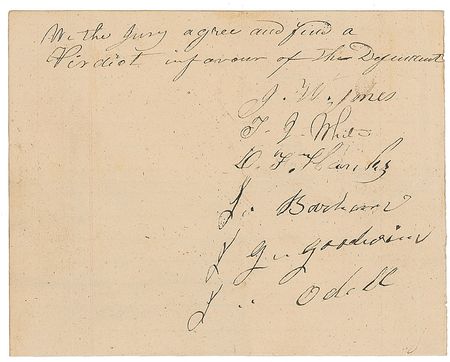 We the Jury agree and find a
Virdict infavour of the Defendent
J. W. Jones
T. J. White
D. F.
L.
J. G. Goodwin
J. Odell